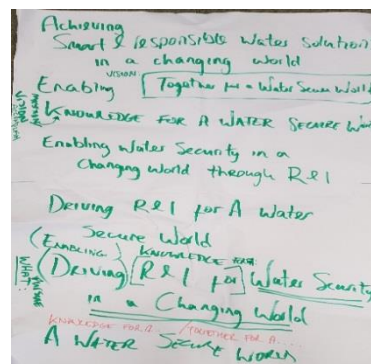 Achieving
Smart & responsible Water Solution
in a changing world
VISION:
Enabling Together for a Water Secure World
KNOWLEDGE FOR A WATER SECURE
Enabling Water Security in a
Changing World through R&I
Driving R&I for A Water
Secure World
(ENABLING) KNOWLEDGE FOR
WHAT:
(Driving) [R&I for] Water Security
in a Changing World
KNOWLEDGE FOR A..... / TOGETHER FOR A.....
A WATER SECURE WORLD